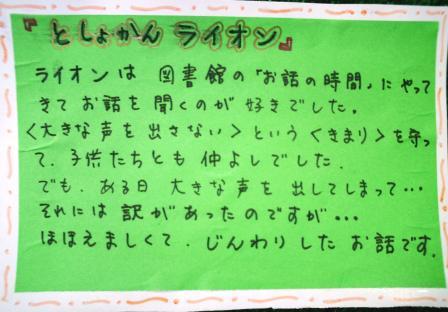 『としょかん ライオン』
ライオンは 図書館の「お話の時間」にやって
きてお話を聞くのが好きでした。
<大きな声を出さない>という<きまり>を守っ
て、子供たちとも仲よしでした。
でも、ある日 大きな声を出してしまって…
それには訳があったのですが…
ほほえましくて、じんわりしたお話です。